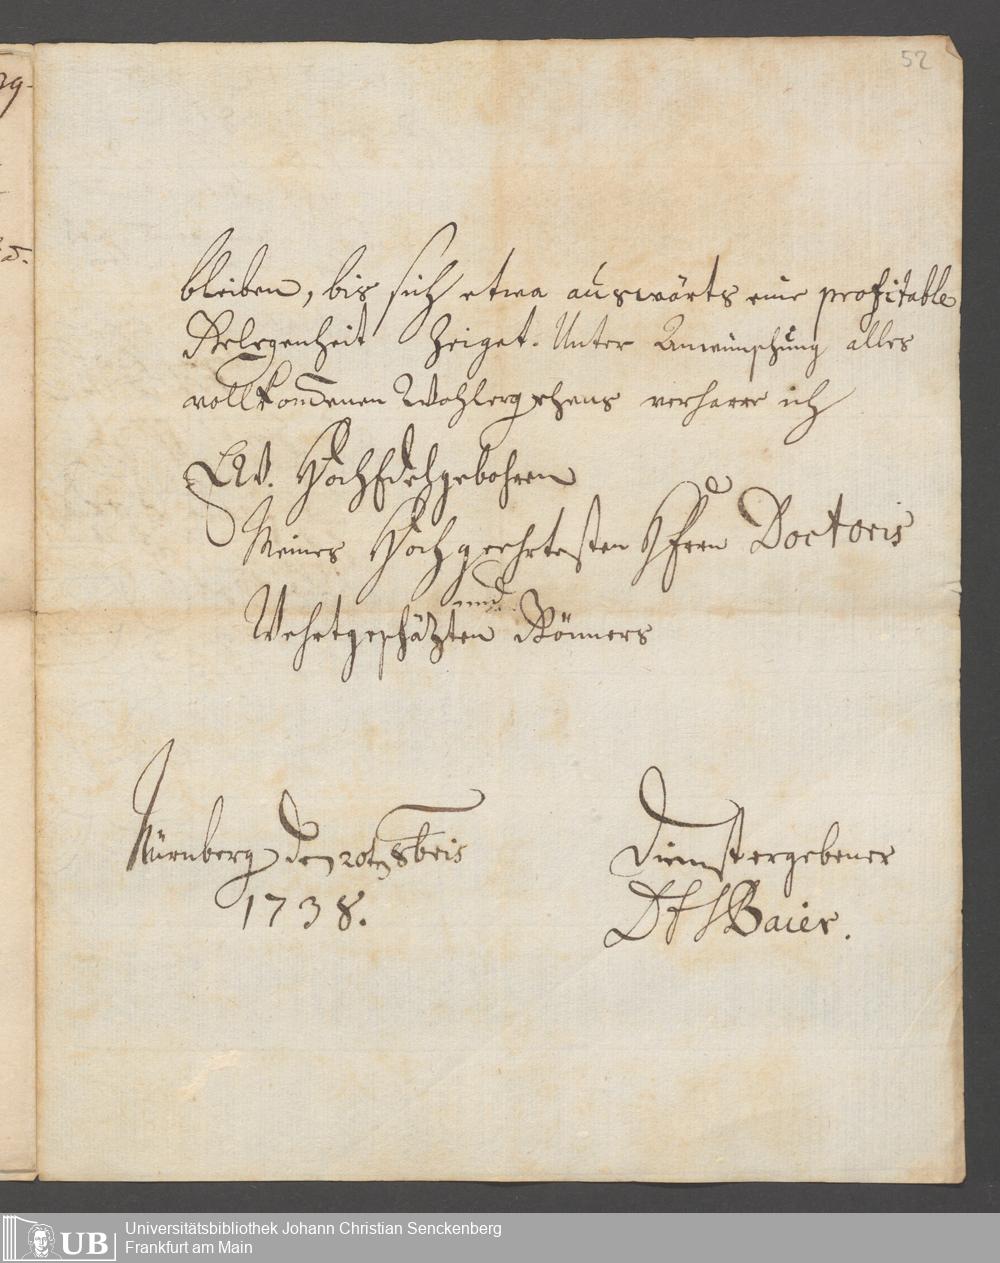 52
bleiben, bis sich etwa auswärts eine profitable
Gelegenheit Zeiget. Unter Anwünschung alles
vollkom̅enen Wohlergehens verharre ich
Ew. HochEdelgebohren
Meines Hochgeehrtesten Herrn Doctoris
und
Wehrtgeschätzten Gönners
Nürnberg den 20ten 8bris
1738.
Dienstergebener
Baier.
UB
Universitätsbibliothek Johann Christian Senckenberg
Frankfurt am Main